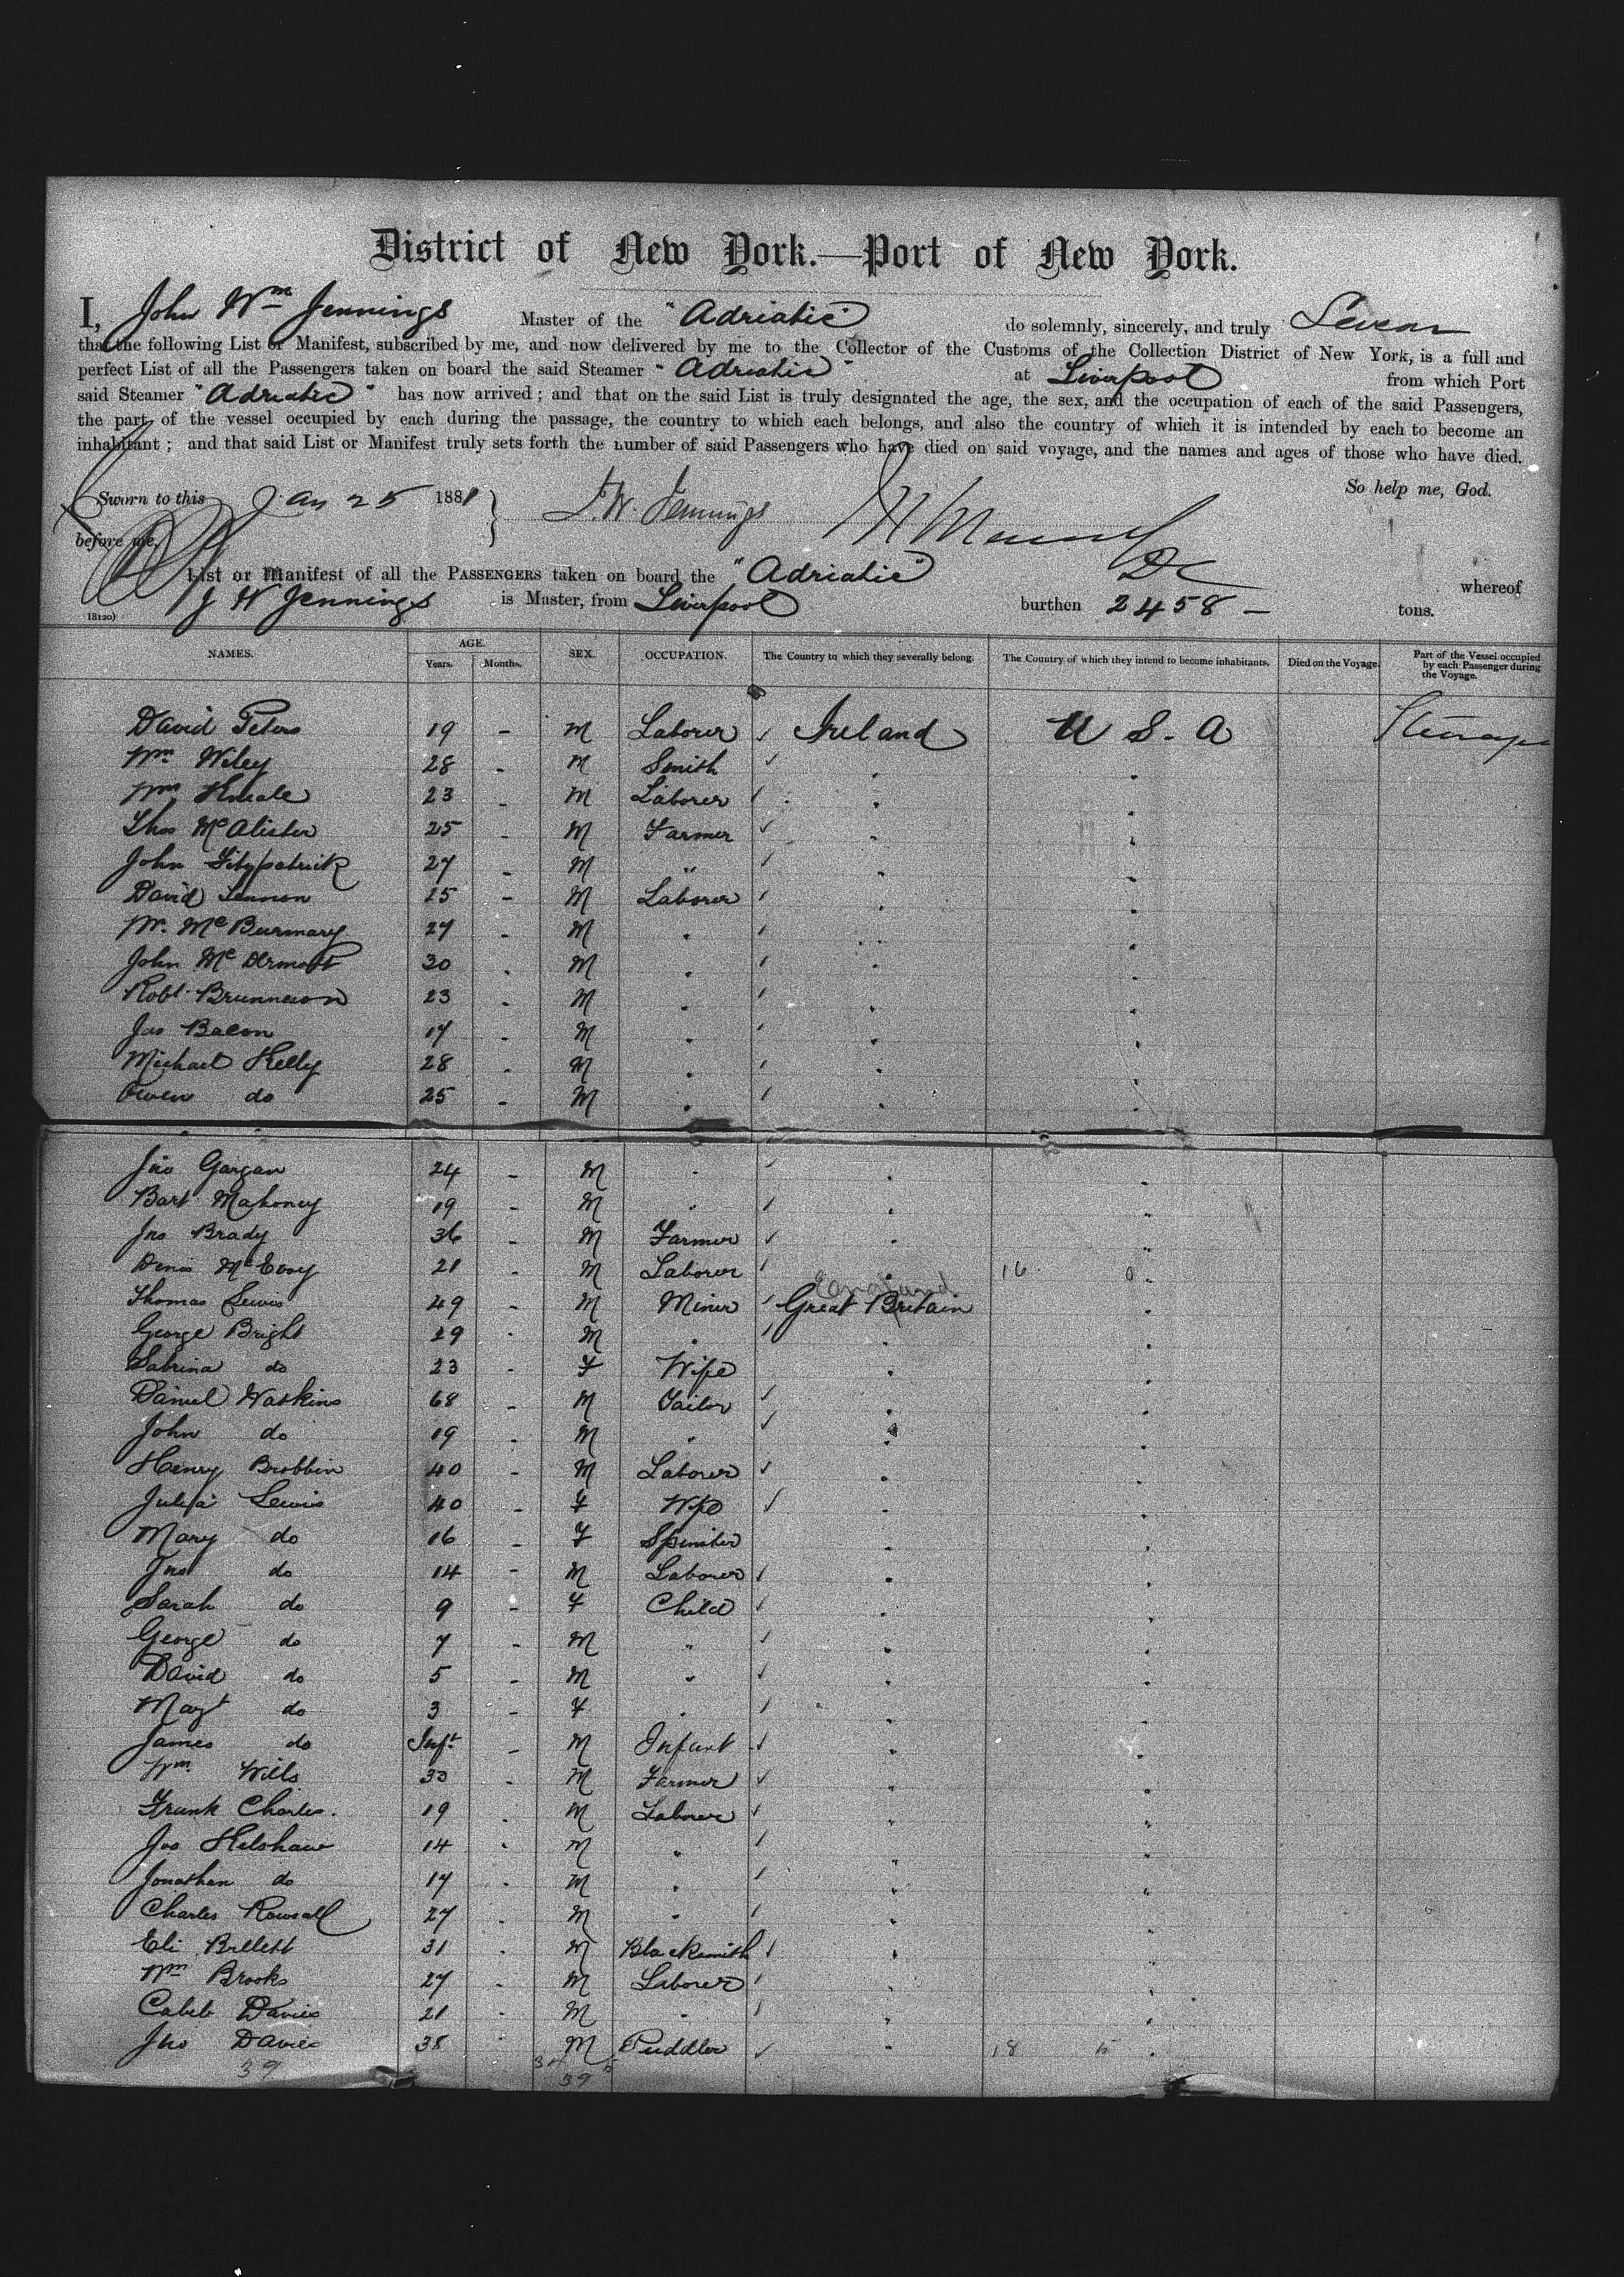 District of New York.—Port of New York.
I, John Wm Jennings Master of the "Adriatic" do solemnly, sincerely, and truly Swear
that the following List or Manifest, subscribed by me, and now delivered by me to the Collector of the Customs of the Collection District of New York, is a full and
perfect List of all the Passengers taken on board the said Steamer "Adriatic" at Liverpool from which Port
said Steamer "Adriatic" has now arrived; and that on the said List is truly designated the age, the sex, and the occupation of each of the said Passengers,
the part of the vessel occupied by each during the passage, the country to which each belongs, and also the country of which it is intended by each to become an
inhabitant; and that said List or Manifest truly sets forth the number of said Passengers who have died on said voyage, and the names and ages of those who have died.
So help me, God.
Sworn to this Jan 25 1881 J. W. Jennings
before me,
List or Manifest of all the PASSENGERS taken on board the "Adriatic" whereof
J W Jennings is Master, from Liverpool burthen 2458 — tons.
NAMES. AGE. Years. Months. SEX. OCCUPATION. The Country to which they severally belong. The Country of which they intend to become inhabitants. Died on the Voyage. Part of the Vessel occupied by each Passenger during the Voyage.
David Peters 19 - M Laborer Ireland U S. A Steerage
Wm Wiley 28 - M Smith "
Wm Kneale 23 - M Laborer "
Thos McAlister 25 - M Farmer "
John Fitzpatrick 27 - M " "
David Lennon 25 - M Laborer "
W. McBurmary 27 - M " "
John McDermott 30 - M " "
Robt 23 - M " "
Jas Bacon 17 - M " "
Michael Kelly 28 - M " "
Owen do 25 - M " "
Jno Gargan 24 - M " "
Bart Mahoney 19 - M " "
Jno Brady 36 - M Farmer "
Denis McEvoy 21 - M Laborer " 16 0
England
Thomas Lewis 49 - M Miner Great Britain "
George Bright 29 - M " "
Sabrina do 23 - F Wife "
Daniel Watkins 68 - M Tailor "
John do 19 - M " "
Henry Brobbin 40 - M Laborer "
Julia Lewis 40 - F Wife "
Mary do 16 - F Spinster "
Jno do 14 - M Laborer "
Sarah do 9 - F Child "
George do 7 - M " "
David do 5 - M " "
Magt do 3 - F " "
James do Inft - M Infant "
Wm Wills 30 - M Farmer "
Frank Charles. 19 - M Laborer "
Jos Kelshaw 14 - M " "
Jonathan do 17 - M " "
Charles Rowsall 27 - M " "
Eli Billett 31 - M Blacksmith "
Wm Brooks 27 - M Laborer "
Caleb Davies 21 - M " "
Jno Davies 38 - M Puddler " 18 5
39 34 5
39